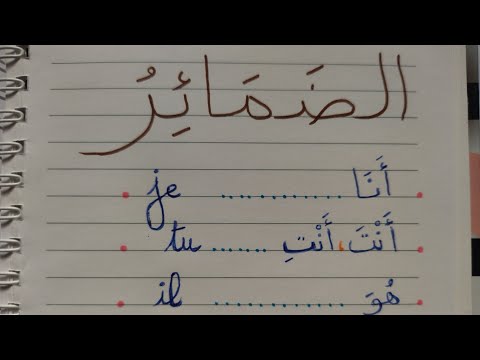 الضَمَائِرُ
أَنَا ............ je
أَنْتَ، أَنْتِ ....... tu
هُوَ ............ il